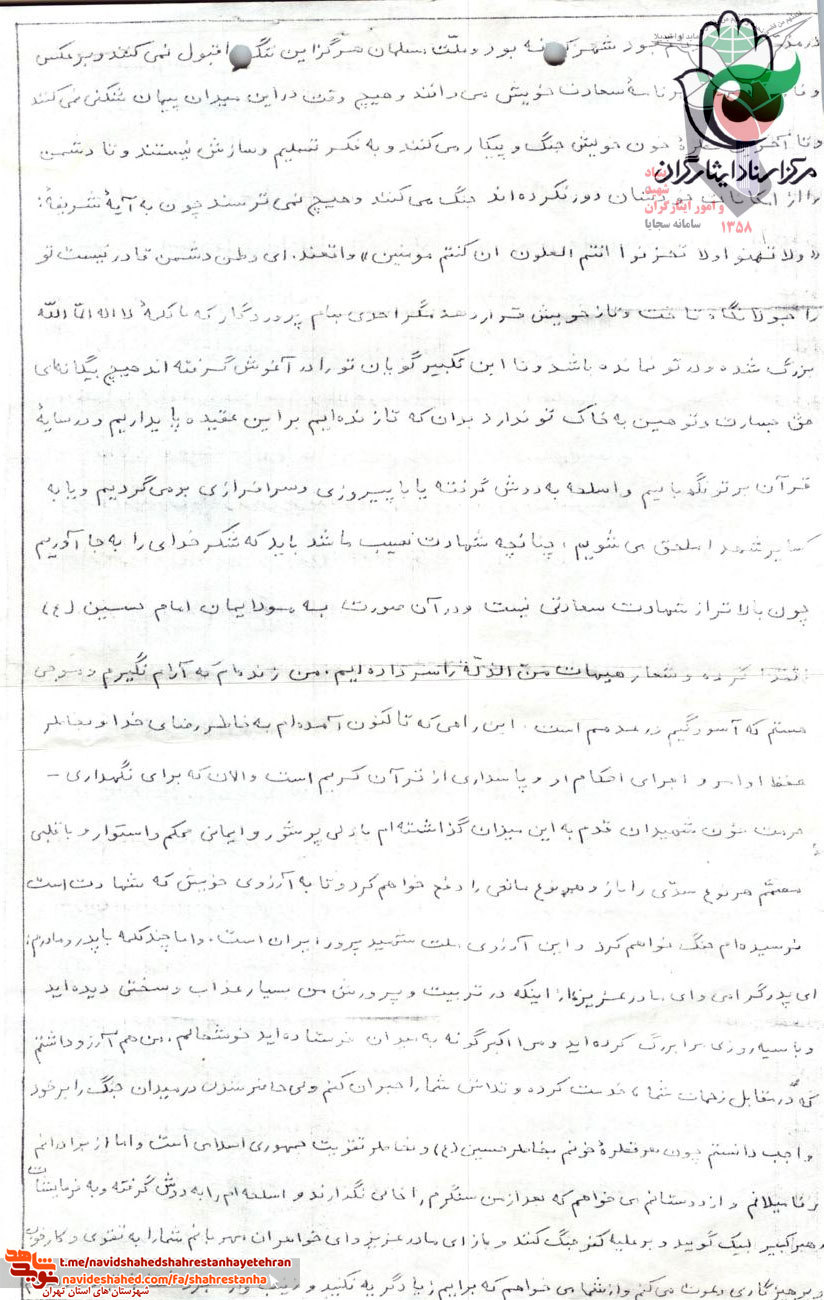 بود و ملت مسلمان هرگز این ننگ را قبول نمی کنند و برعکس
سعادت خویش می دانند و هیچ وقت در این میدان پیمان شکنی نمی کنند
و تا آخرین قطرهٔ خون خویش جنگ و پیکار می کنند و به فکر تسلیم و سازش نیستند و تا دشمن
را از دور نکرده اند جنگ می کنند و هیچ نمی ترسند چون به آیهٔ شریفهٔ:
«ولا تهنوا ولا تحزنوا انتم العلون ان کنتم مومنین» واقعند. ای وطن دشمن قادر نیست تو
را جولانگاه تاخت و تاز خویش قرار دهد مگر احدی بنام پروردگار که با کلمهٔ لا اله الا الله
بزرگ شده در تو نمانده باشد و تا این تکبیر گویان تو را در آغوش گرفته اند هیچ بیگانه ای
حق جسارت و توهین به خاک تو ندارد بدان که تا زنده ایم بر این عقیده پا یداریم و در سایهٔ
قرآن بر تو نگهبانیم و اسلحه به دوش گرفته یا با پیروزی و سرافرازی بر می گردیم و یا به
شهدا ملحق می شویم، چنانچه شهادت نصیب ما شد باید که شکر خدای را به جا آوریم
چون بالاتر از شهادت سعادتی نیست و در آن صورت به مولایمان امام حسین (ع)
اقتدا کرده و شعار هیهات من الذلة را سر داده ایم. من زنده ام که آرام نگیرم و موجی
هستم که آسودگیم در عدمم است. این راهی که تا کنون آمده ام به خاطر رضای خدا و بخاطر
حفظ اوامر و اجرای احکام او و پاسداری از قرآن کریم است و الان که برای نگهداری -
حرمت خون شهیدان قدم به این میدان گذاشته ام با دلی پرشور و ایمانی محکم و استوار و با قلبی
مصمم هر نوع سدّی را باز و هر نوع مانعی را دفع خواهم کرد و تا به آرزوی خویش که شهادت است
نرسیده ام جنگ خواهم کرد و این آرزوی ملت شهید پرور ایران است. و اما چند کلمه با پدر و مادرم:
ای پدر گرامی و ای مادر عزیزم از اینکه در تربیت و پرورش من بسیار عذاب و سختی دیده اید
و با سیه روزی مرا بزرگ کرده اید و مرا اکبر گونه به میدان فرستاده اید خوشحالم. من هم آرزو داشتم
که در مقابل زحمات شما، خدمت کرده و تلاش شما را جبران کنم ولی حاضر شدن در میدان جنگ را بر خود
واجب دانستم چون هر قطرهٔ خونم بخاطر حسین (ع) و بخاطر تقویت جمهوری اسلامی است و اما از برادرانم
و فامیلانم و از دوستانم می خواهم که بعد از من سنگرم را خالی نگذارند و اسلحه ام را به دوش گرفته و به فرمایشات
رهبر کبیر لبیک گویید و بر علیه کفر جنگ کنند و باز ای مادر عزیز و ای خواهران مهربانم شما را به تقوی و کار خوب
و پرهیزگاری دعوت می کنم و از شما می خواهم که برایم زیاد گریه نکنید و
مرکز اسناد ایثارگران
بنیاد
شهید
و امور ایثارگران
سامانه سجایا
۱۳۵۸
نوید شاهد
t.me/navidshahedshahrestanhayetehran
navideshahed.com/fa/shahrestanha
شهرستان های استان تهران